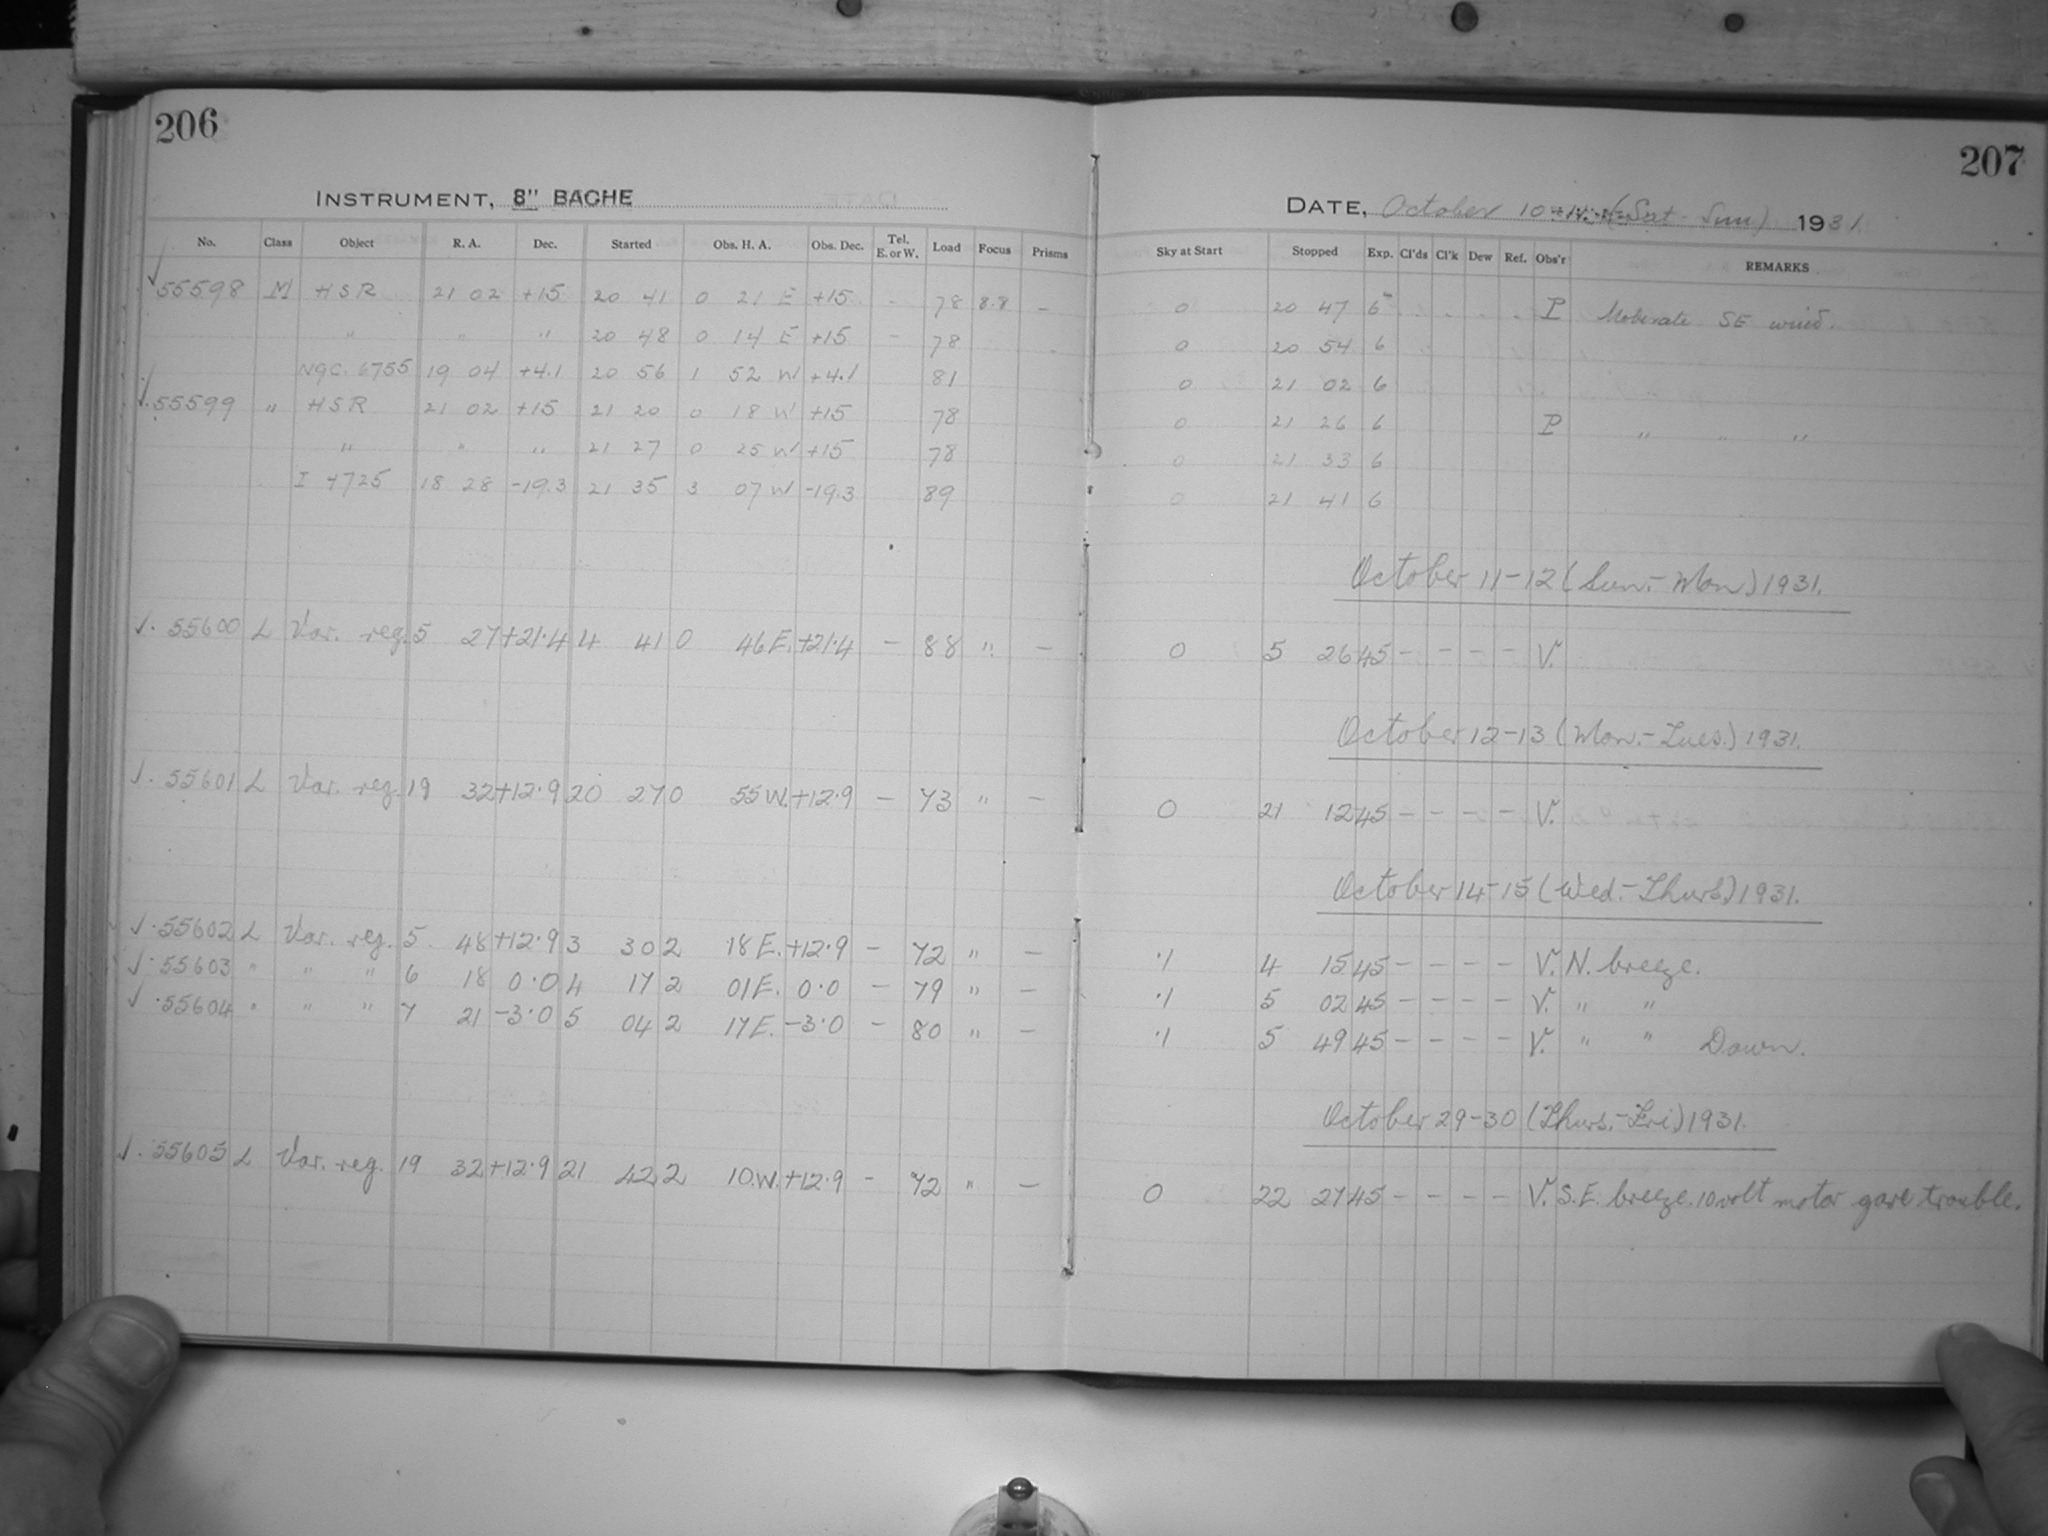 206
207
INSTRUMENT, 8" BACHE
DATE, October 10-11 (Sat-Sun) 1931
No. Class Object R. A. Dec. Started Obs. H. A. Obs. Dec. Tel. E. or W. Load Focus Prisms Sky at Start Stopped Exp. Cl'ds Cl'k Dew Ref. Obs'r REMARKS
√ 55598 M HSR 21 02 +15 20 41 0 21 E +15 - 78 8.8 - 0 20 47 6 P Moderate SE wind.
" " " 20 48 0 14 E +15 - 78 0 20 54 6
NGC. 6755 19 04 +4.1 20 56 1 52 W +4.1 81 0 21 02 6
√ 55599 " HSR 21 02 +15 21 20 0 18 W +15 78 0 21 26 6 P " " "
" " " 21 27 0 25 W +15 78 0 21 33 6
I 4725 18 28 -19.3 21 35 3 07 W -19.3 89 0 21 41 6
October 11-12 (Sun.-Mon) 1931.
√. 55600 L Var. reg. 5 27 +21.4 4 41 0 46 E. +21.4 - 88 " - 0 5 26 45 - - - - V.
October 12-13 (Mon.-Tues.) 1931.
√. 55601 L Var. reg. 19 32 +12.9 20 27 0 55 W. +12.9 - 73 " - 0 21 12 45 - - - - V.
October 14-15 (Wed.-Thurs) 1931.
√. 55602 L Var. reg. 5 48 +12.9 3 30 2 18 E. +12.9 - 72 " - .1 4 15 45 - - - - V. N. breeze.
√. 55603 " " " 6 18 0.0 4 17 2 01 E. 0.0 - 79 " - .1 5 02 45 - - - - V. " "
√. 55604 " " " 7 21 -3.0 5 04 2 17 E. -3.0 - 80 " - .1 5 49 45 - - - - V. " " Dawn.
October 29-30 (Thurs.-Fri) 1931.
√. 55605 L Var. reg. 19 32 +12.9 21 42 2 10 W. +12.9 - 72 " - 0 22 27 45 - - - - V. S.E. breeze. 10 volt motor gave trouble.